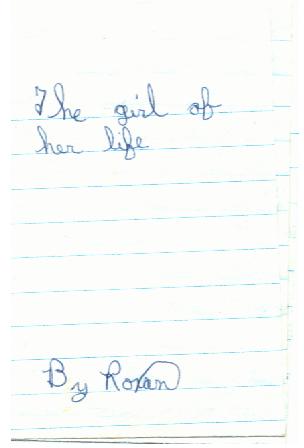 The girl of
her life
By Roxan